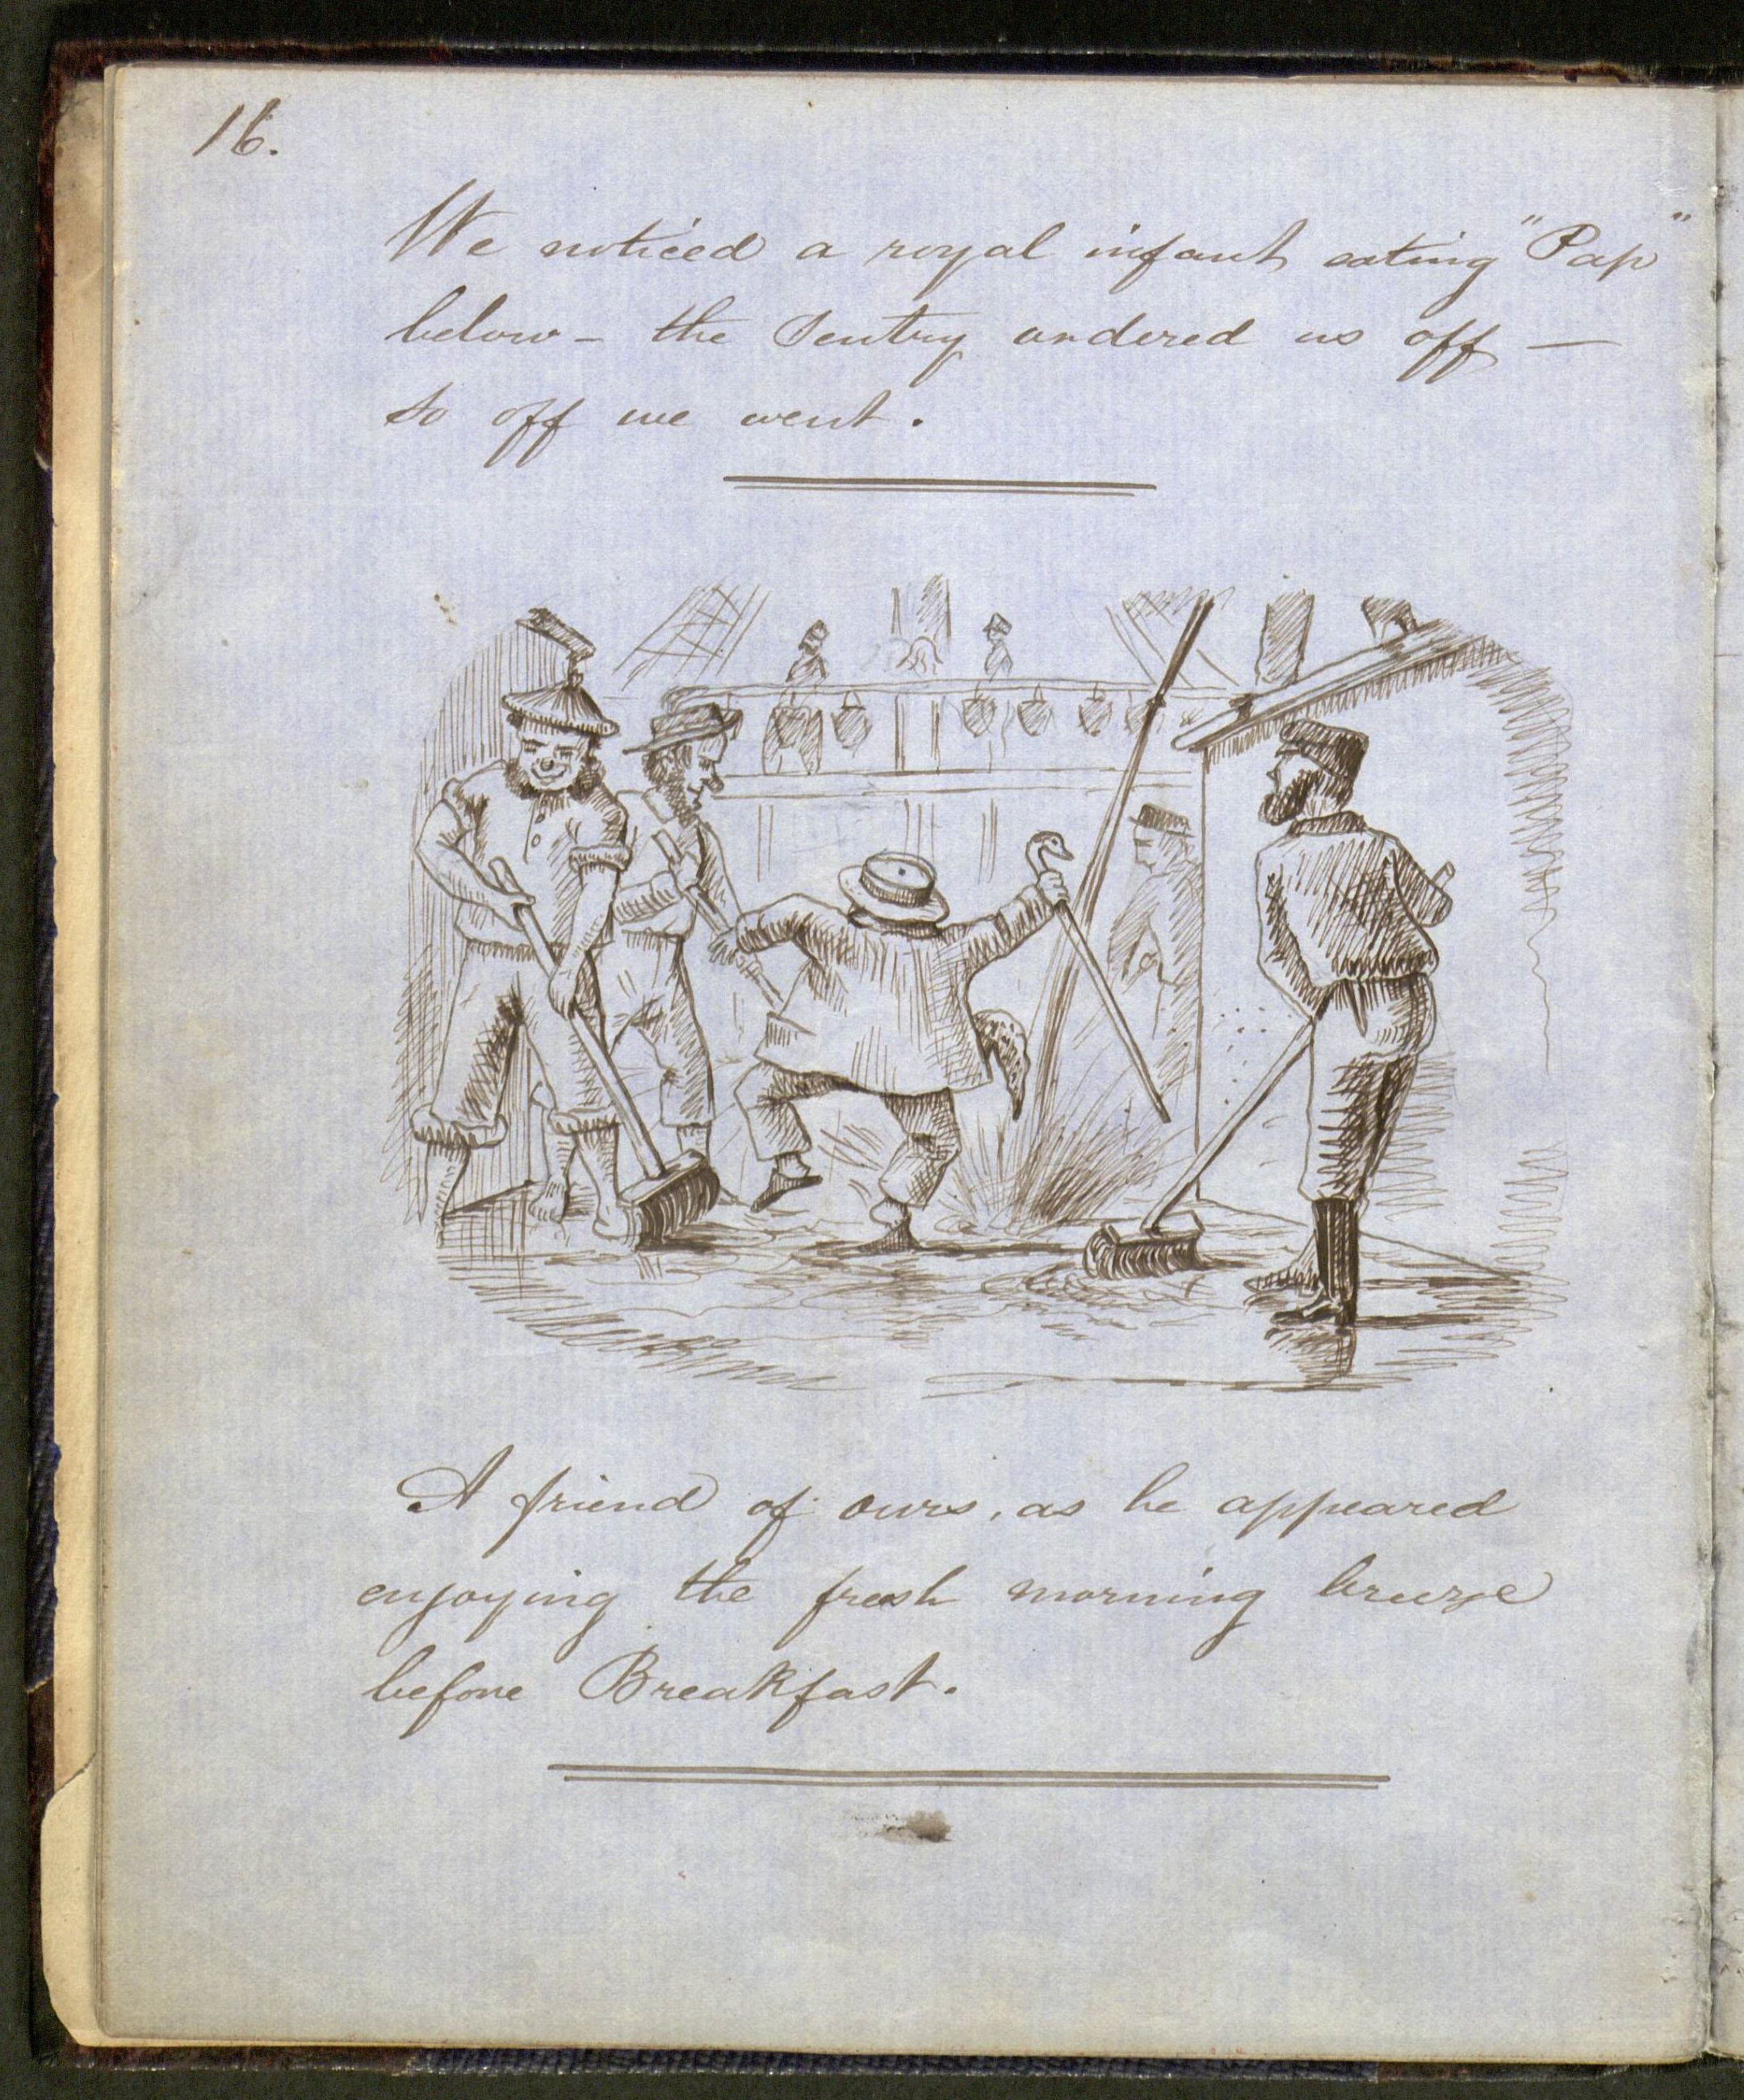 16.
We noticed a royal infant eating "Pap"
below – the Sentry ordered us off —
so off we went.
A friend of ours, as he appeared
enjoying the fresh morning breeze
before Breakfast.